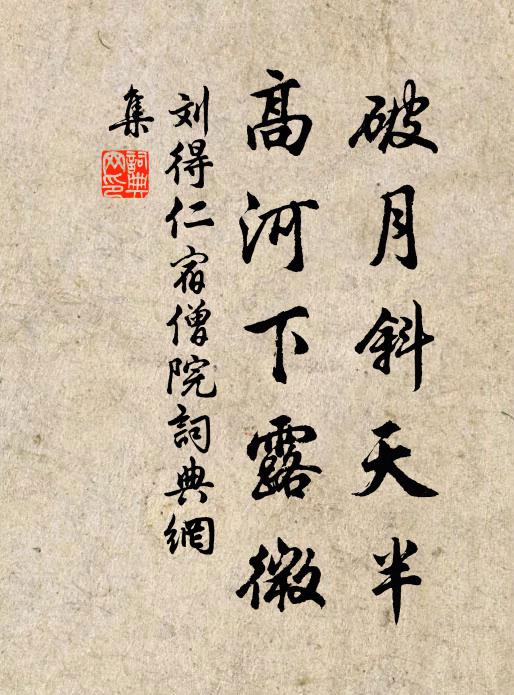 破月斜天半
高河下露微
刘得仁宿僧院詞典網
集
詞典
网印